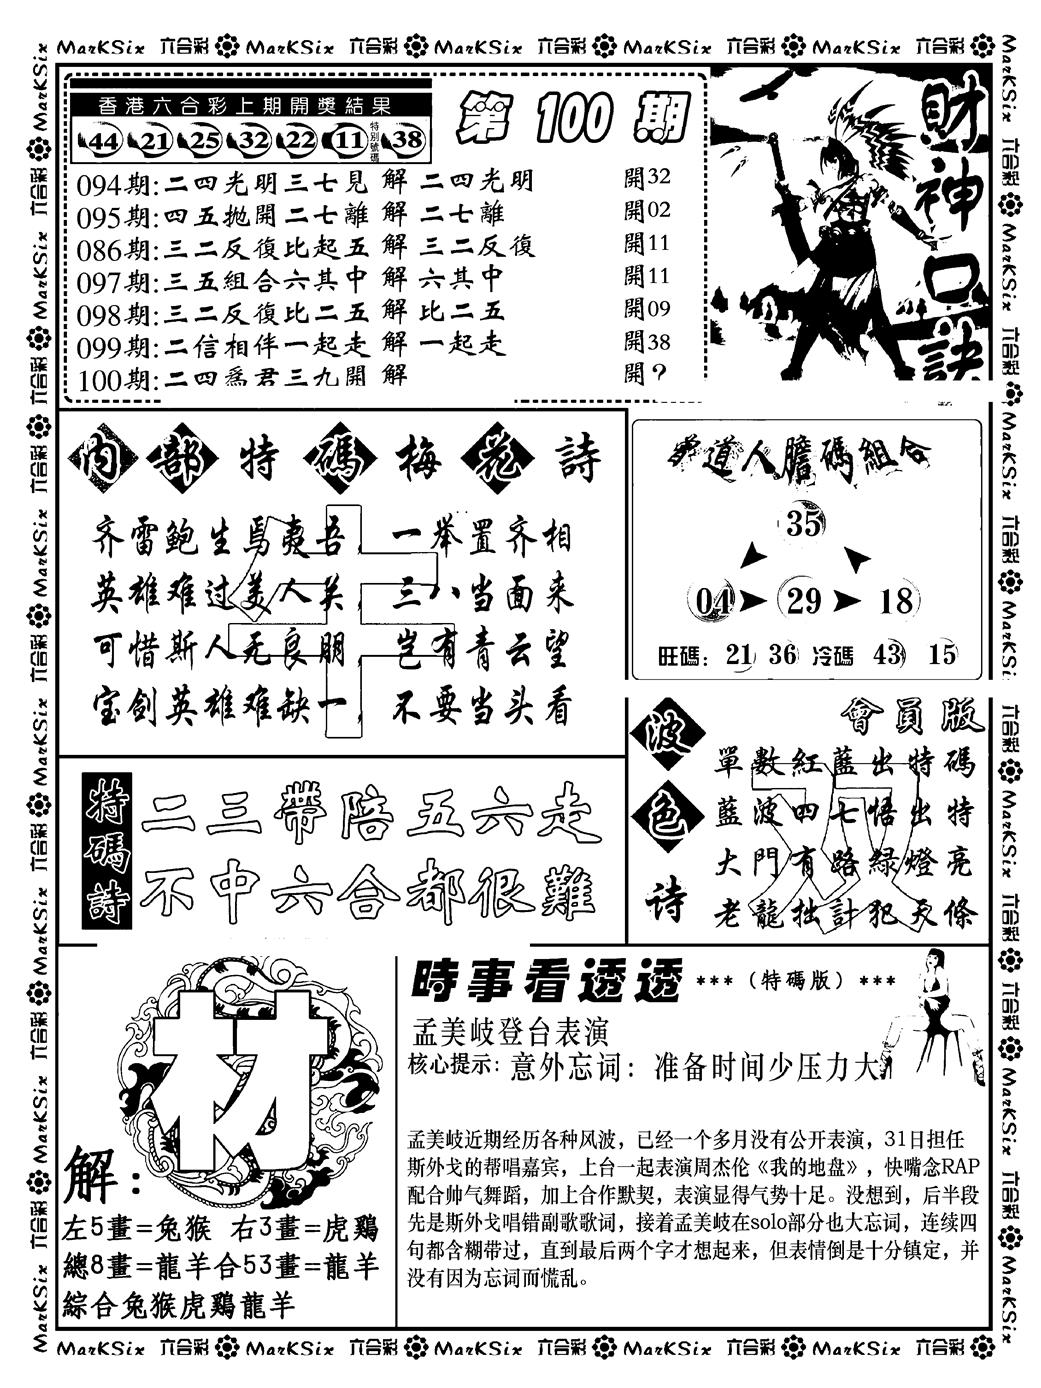 MarKSix 六合彩 MarKSix 六合彩 MarKSix 六合彩 MarKSix 六合彩 MarKSix 六合彩
香港六合彩上期開獎結果
44 21 25 32 22 11 特別號碼 38
第 100 期
財神口訣
094期:二四光明三七見 解 二四光明 開32
095期:四五拋開二七離 解 二七離 開02
086期:三二反復比起五 解 三二反復 開11
097期:三五組合六其中 解 六其中 開11
098期:三二反復比二五 解 比二五 開09
099期:二信相伴一起走 解 一起走 開38
100期:二四爲君三九開 解 開?
内部特碼梅花詩
牛
齐雷鲍生馬夷吾,一举置齐相
英雄难过美人关,三八当面来
可惜斯人无良朋,岂有青云望
宝剑英雄难缺一,不要当头看
道人膽碼組合
35
04 29 18
旺碼: 21 36 冷碼 43 15
波色诗
會員版
双
單數紅藍出特碼
藍波四七悟出特
大門有路綠燈亮
老龍拙計犯天條
特碼詩
二三帶陪五六走
不中六合都很難
材
解:
左5畫=兔猴 右3畫=虎鷄
總8畫=龍羊合53畫=龍羊
綜合兔猴虎鷄龍羊
時事看透透 ***(特碼版)***
孟美岐登台表演
核心提示: 意外忘词: 准备时间少压力大
孟美岐近期经历各种风波,已经一个多月没有公开表演,31日担任
斯外戈的帮唱嘉宾,上台一起表演周杰伦《我的地盘》,快嘴念RAP
配合帅气舞蹈,加上合作默契,表演显得气势十足。没想到,后半段
先是斯外戈唱错副歌歌词,接着孟美岐在solo部分也大忘词,连续四
句都含糊带过,直到最后两个字才想起来,但表情倒是十分镇定,并
没有因为忘词而慌乱。
MarKSix 六合彩 MarKSix 六合彩 MarKSix 六合彩 MarKSix 六合彩 MarKSix 六合彩